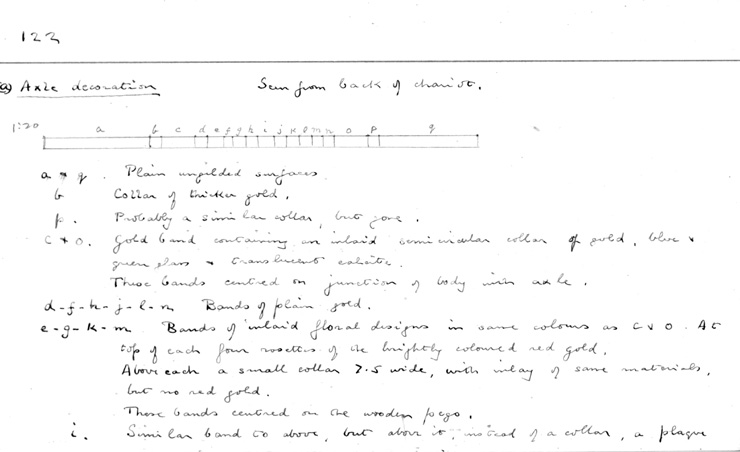 122
(a) Axle decoration Seen from back of chariot.
1:20 a b c d e f g h i j k l m n o p q
a + q. Plain ungilded surfaces
b Collar of thicker gold.
p. Probably a similar collar, but gone.
c + o. Gold band containing an inlaid semicircular collar of gold, blue +
green glass + translucent calcite.
These bands centred on junction of body with axle.
d-f-h-j-l-n Bands of plain gold.
e-g-k-m. Bands of inlaid floral designs in same colours as c + o. At
top of each four rosettes of the brightly coloured red gold.
Above each a small collar 7.5 wide, with inlay of same materials,
but no red gold.
These bands centred on the wooden pegs.
i. Similar band to above, but above it, instead of a collar, a plaque